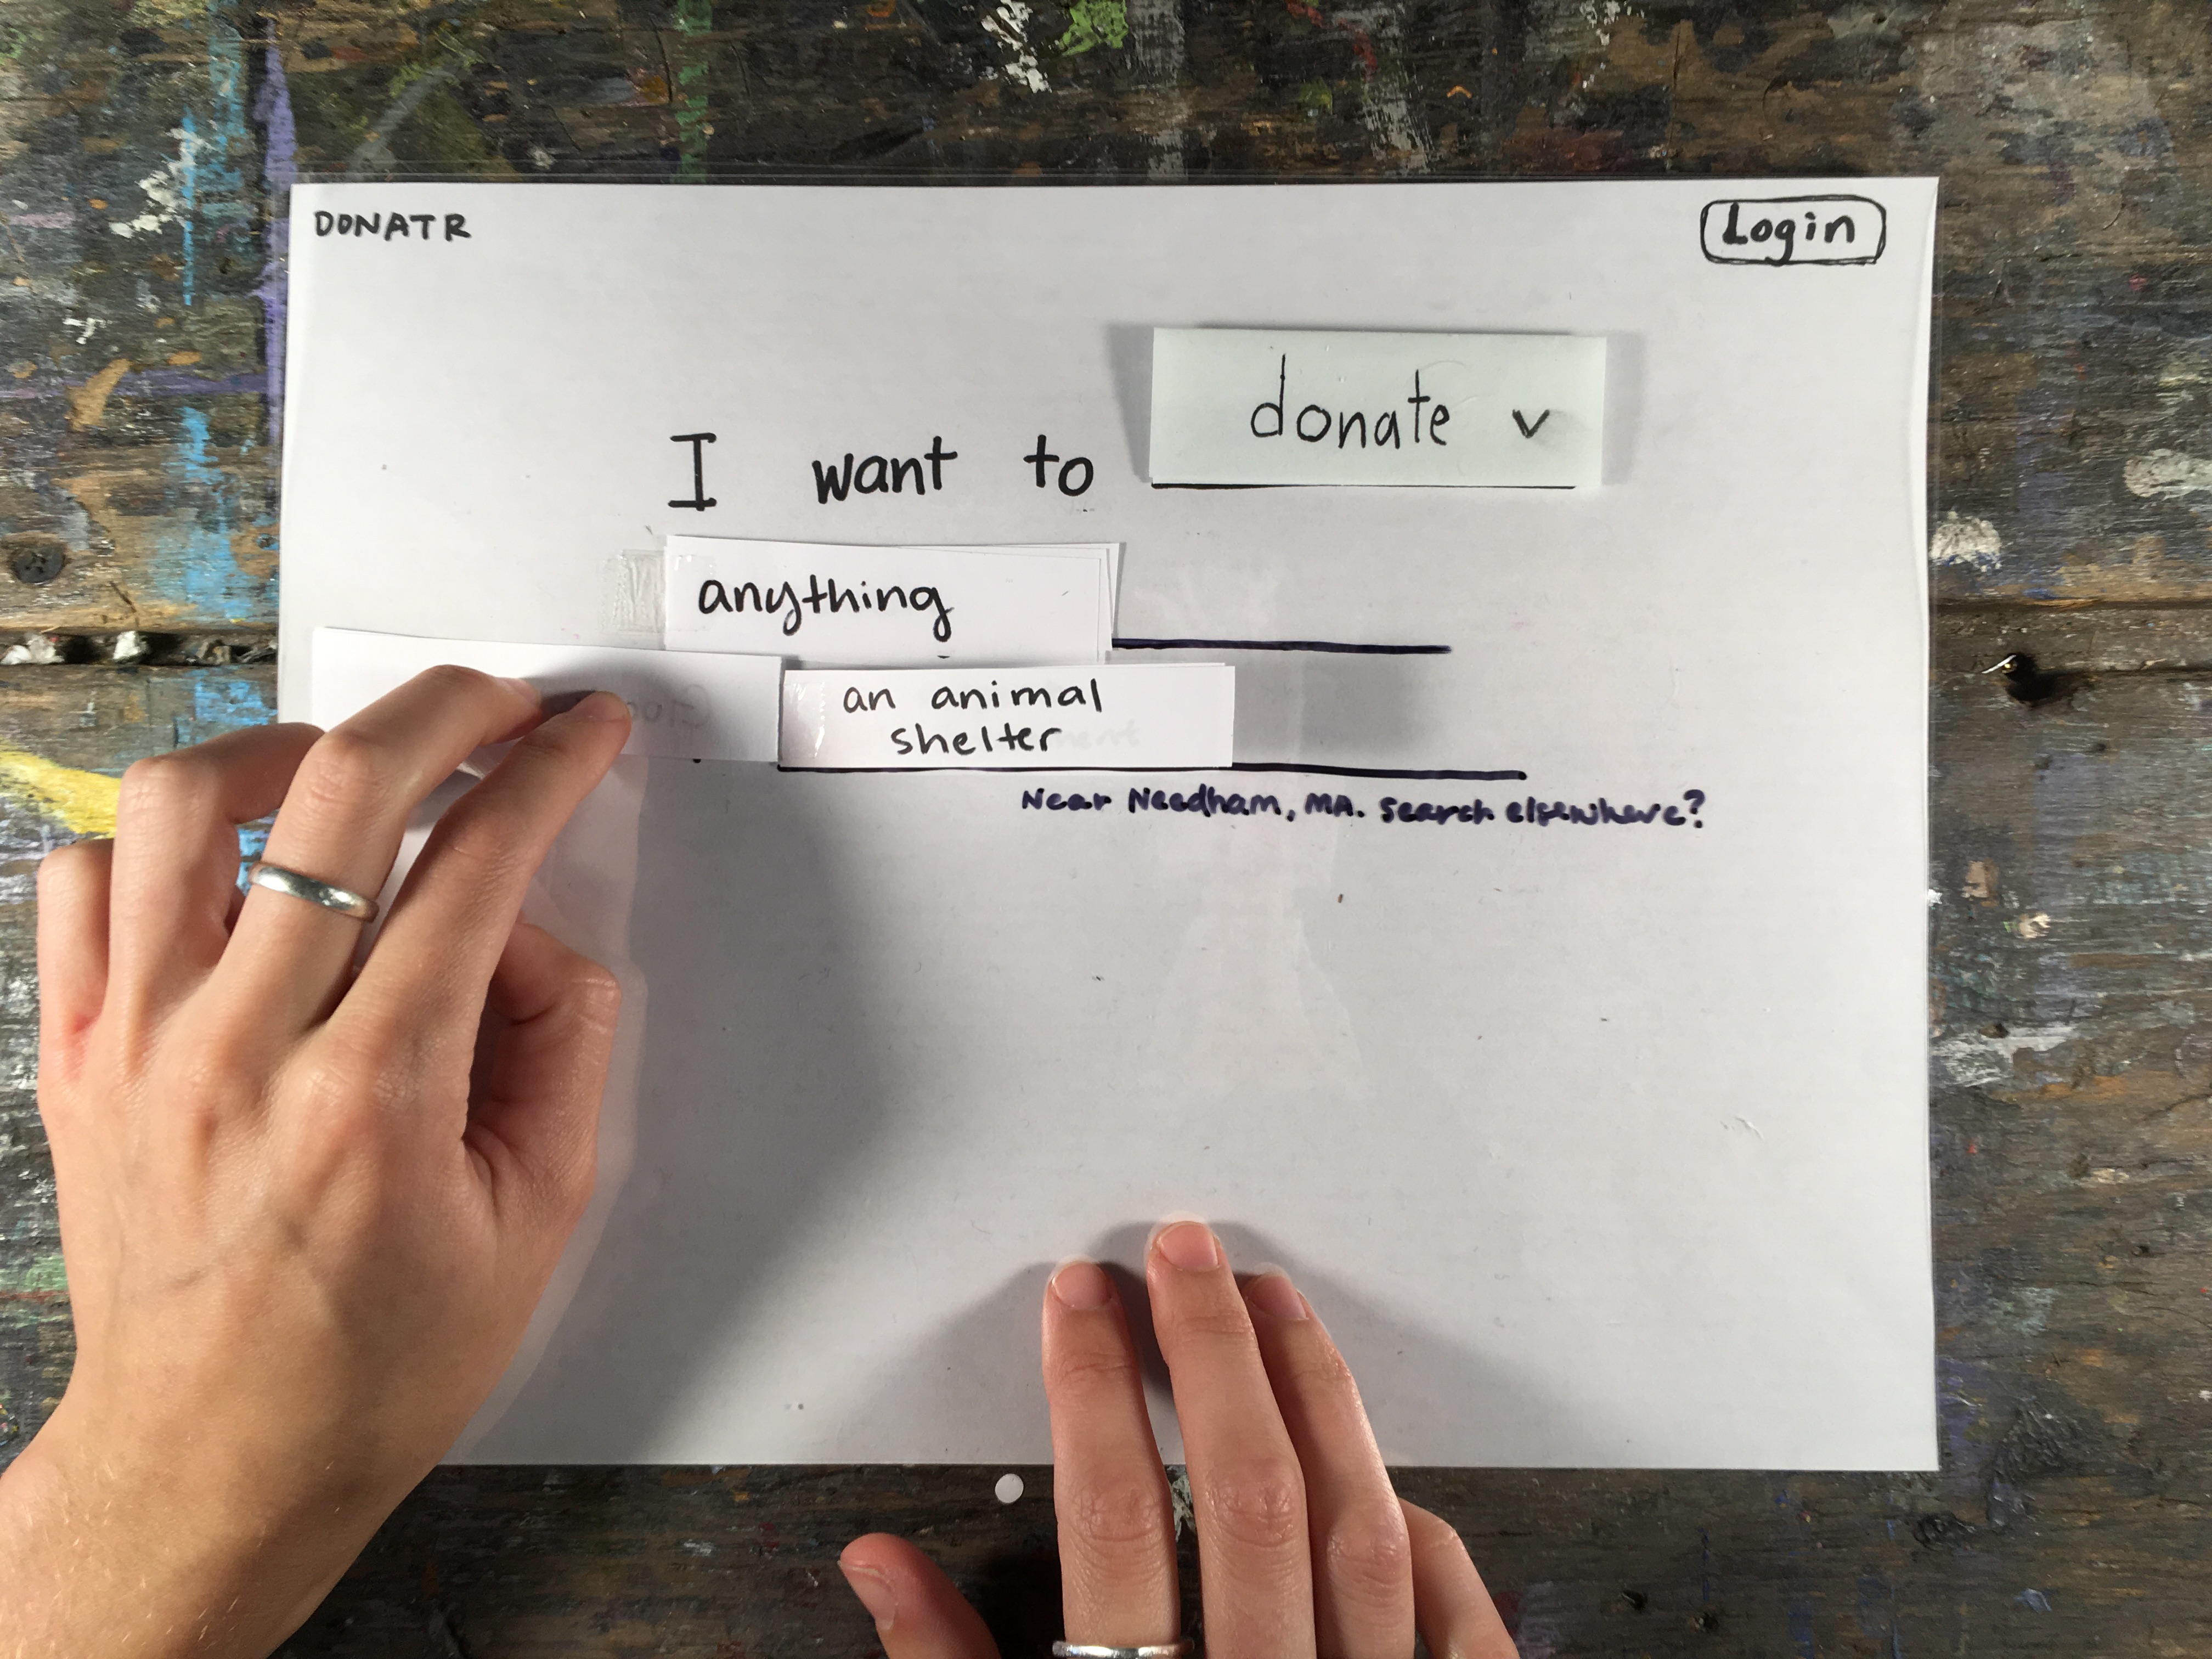 DONATR
Login
I want to donate v
anything
an animal
shelter
Near Needham, MA. Search elsewhere?